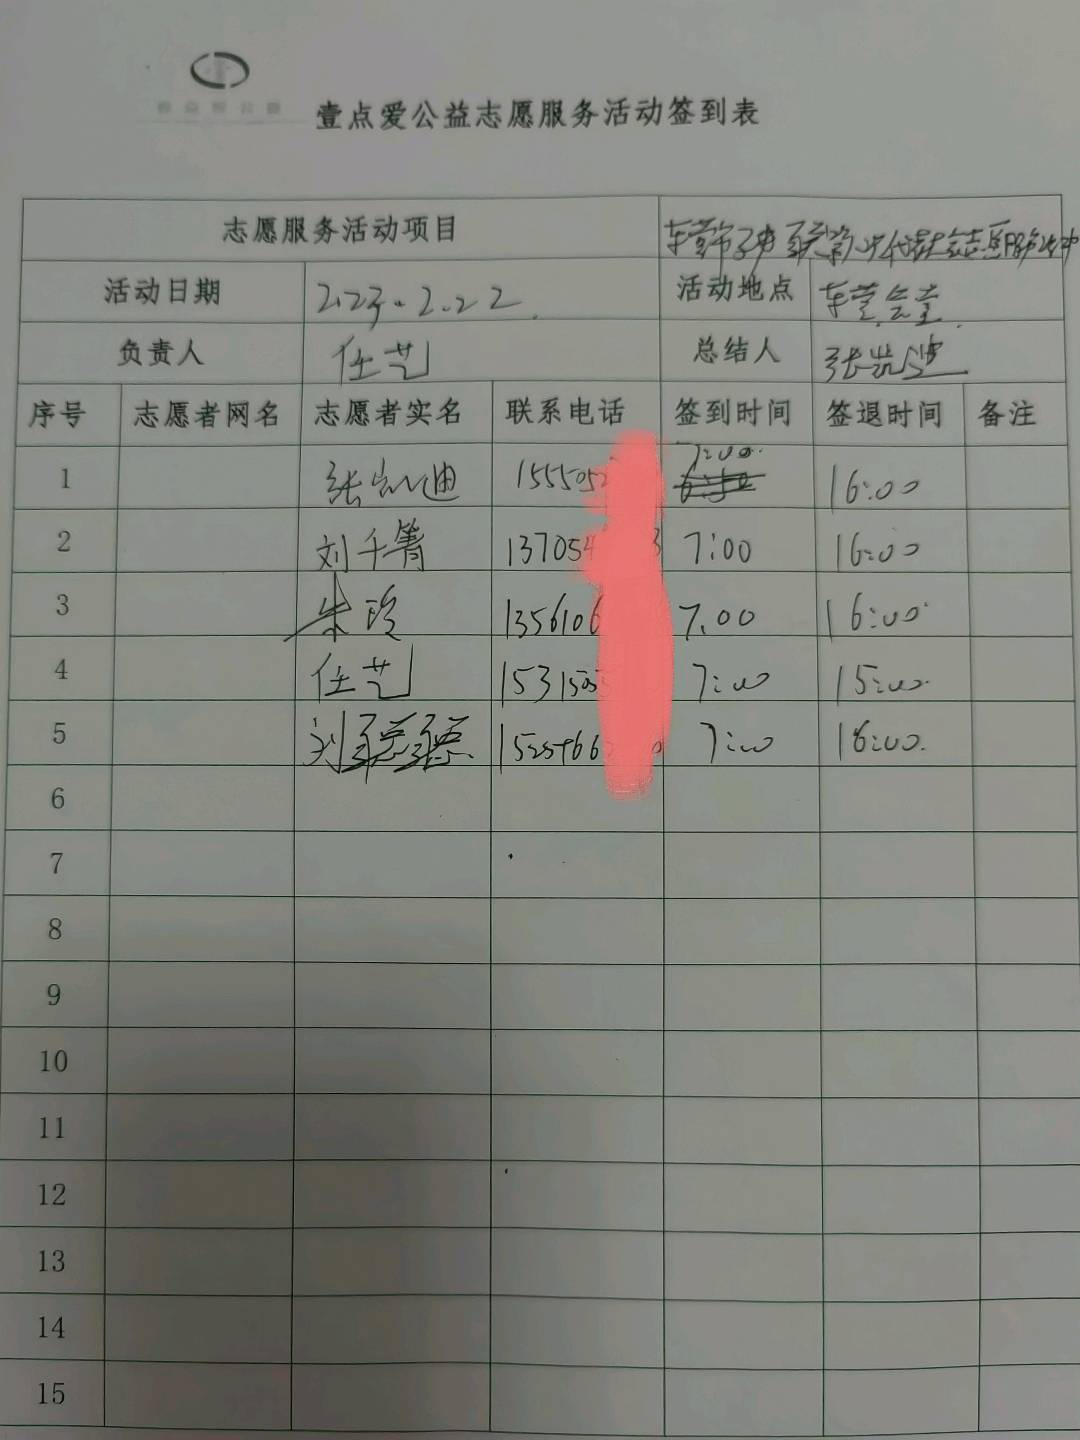 壹点爱公益志愿服务活动签到表
志愿服务活动项目
活动日期 2023.2.22 活动地点 东营会堂
负责人 任艺 总结人 张岚迪
序号 志愿者网名 志愿者实名 联系电话 签到时间 签退时间 备注
1 张岚迪 155505 7:00 16:00
2 刘千箐 137054 3 7:00 16:00
3 朱玲 1356106 7.00 16:00
4 任艺 1531505 7:00 15:00
5 刘 1525466 7:00 16:00
6
7
8
9
10
11
12
13
14
15